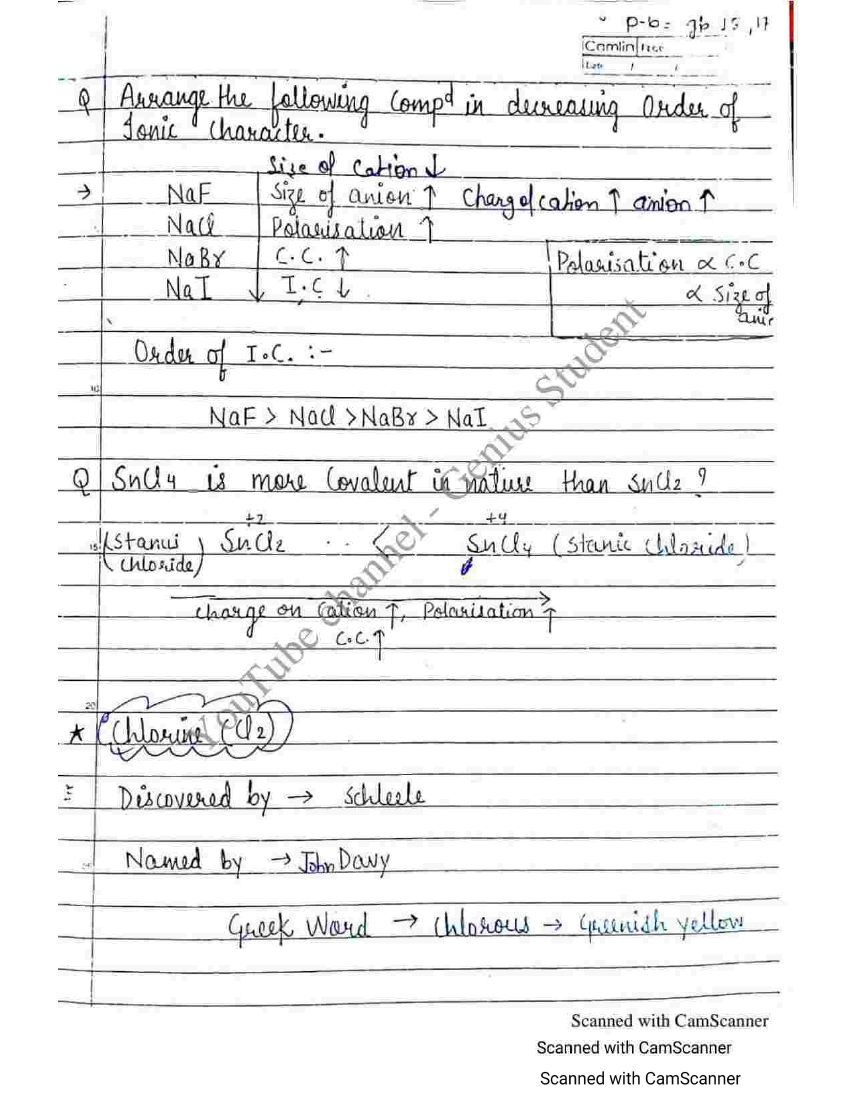 P-b = gb 15, 17
Camlin Page
Date / /
Q Arrange the following Comp^d in decreasing Order of
Ionic Character.
Size of Cation ↓
→ NaF Size of anion ↑ Charge of cation ↑ anion ↑
NaCl Polarisation ↑
NaBr C.C. ↑ Polarisation ∝ C.C
NaI ↓ I.C ↓ ∝ Size of
anir
Order of I.C. :-
10
NaF > NaCl > NaBr > NaI
Q SnCl4 is more Covalent in nature than SnCl2 ?
+2 +4
15 (Stanui SnCl2 .. < SnCl4 (Stanic Chloride)
Chloride)
Charge on Cation ↑, Polarisation ↑
C.C. ↑
20
★ Chlorine (Cl2)
Discovered by → Schleele
Named by → John Davy
Greek Word → Chlorous → Greenish yellow
YouTube channel - Genius Student
Scanned with CamScanner
Scanned with CamScanner
Scanned with CamScanner